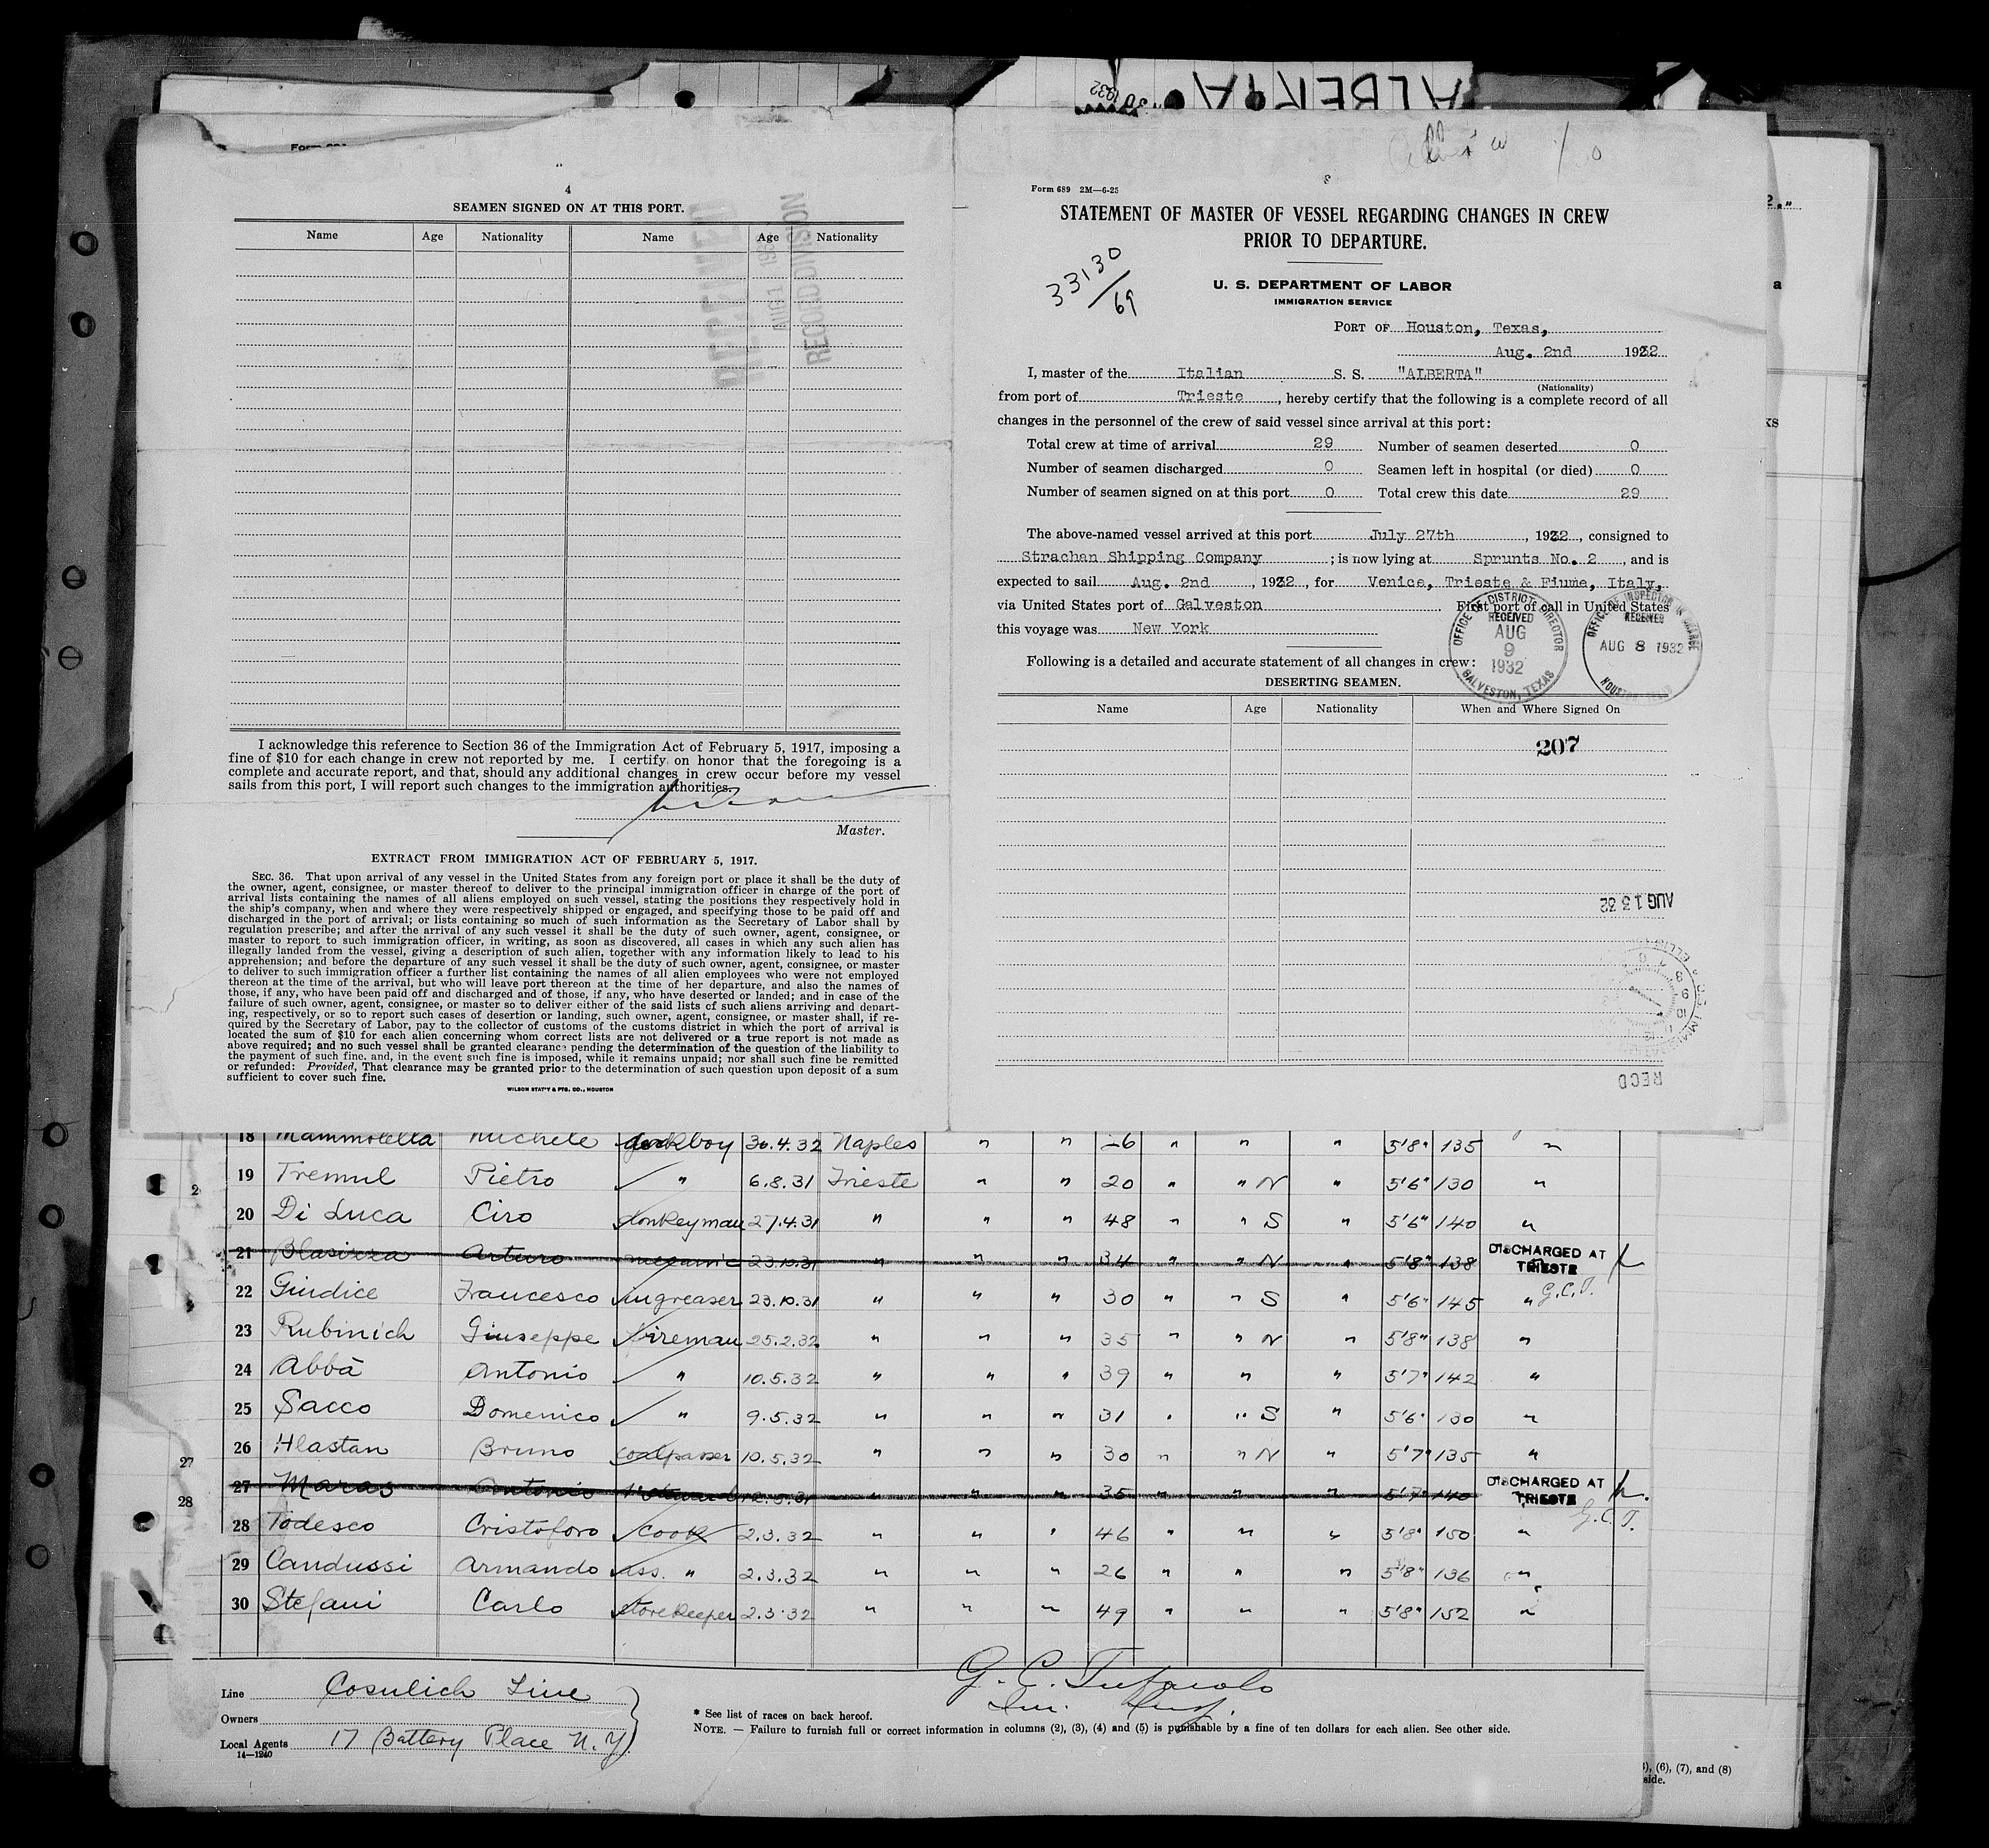 ALBERTA
1932
4
SEAMEN SIGNED ON AT THIS PORT.
Name Age Nationality Name Age Nationality
RECORD DIVISION
I acknowledge this reference to Section 36 of the Immigration Act of February 5, 1917, imposing a
fine of $10 for each change in crew not reported by me. I certify on honor that the foregoing is a
complete and accurate report, and that, should any additional changes in crew occur before my vessel
sails from this port, I will report such changes to the immigration authorities.
Master.
EXTRACT FROM IMMIGRATION ACT OF FEBRUARY 5, 1917.
SEC. 36. That upon arrival of any vessel in the United States from any foreign port or place it shall be the duty of
the owner, agent, consignee, or master thereof to deliver to the principal immigration officer in charge of the port of
arrival lists containing the names of all aliens employed on such vessel, stating the positions they respectively hold in
the ship's company, when and where they were respectively shipped or engaged, and specifying those to be paid off and
discharged in the port of arrival; or lists containing so much of such information as the Secretary of Labor shall by
regulation prescribe; and after the arrival of any such vessel it shall be the duty of such owner, agent, consignee, or
master to report to such immigration officer, in writing, as soon as discovered, all cases in which any such alien has
illegally landed from the vessel, giving a description of such alien, together with any information likely to lead to his
apprehension; and before the departure of any such vessel it shall be the duty of such owner, agent, consignee, or master
to deliver to such immigration officer a further list containing the names of all alien employees who were not employed
thereon at the time of the arrival, but who will leave port thereon at the time of her departure, and also the names of
those, if any, who have been paid off and discharged and of those, if any, who have deserted or landed; and in case of the
failure of such owner, agent, consignee, or master so to deliver either of the said lists of such aliens arriving and depart-
ing, respectively, or so to report such cases of desertion or landing, such owner, agent, consignee, or master shall, if re-
quired by the Secretary of Labor, pay to the collector of customs of the customs district in which the port of arrival is
located the sum of $10 for each alien concerning whom correct lists are not delivered or a true report is not made as
above required; and no such vessel shall be granted clearance pending the determination of the question of the liability to
the payment of such fine, and, in the event such fine is imposed, while it remains unpaid; nor shall such fine be remitted
or refunded: Provided, That clearance may be granted prior to the determination of such question upon deposit of a sum
sufficient to cover such fine.
WILSON STAT'Y & PTG. CO., HOUSTON
Form 689 2M—6-25
STATEMENT OF MASTER OF VESSEL REGARDING CHANGES IN CREW
PRIOR TO DEPARTURE.
33130/69
U. S. DEPARTMENT OF LABOR
IMMIGRATION SERVICE
PORT OF Houston, Texas,
Aug. 2nd 1932
I, master of the Italian S. S. "ALBERTA"
(Nationality)
from port of Trieste, hereby certify that the following is a complete record of all
changes in the personnel of the crew of said vessel since arrival at this port:
Total crew at time of arrival 29 Number of seamen deserted 0
Number of seamen discharged 0 Seamen left in hospital (or died) 0
Number of seamen signed on at this port 0 Total crew this date 29
The above-named vessel arrived at this port July 27th, 1932, consigned to
Strachan Shipping Company; is now lying at Sprunts No. 2, and is
expected to sail Aug. 2nd, 1932, for Venice, Trieste & Fiume, Italy,
via United States port of Galveston. First port of call in United States
this voyage was New York
OFFICE OF DISTRICT DIRECTOR RECEIVED AUG 9 1932 GALVESTON, TEXAS
OFFICE OF INSPECTOR IN CHARGE RECEIVED AUG 8 1932
Following is a detailed and accurate statement of all changes in crew:
DESERTING SEAMEN.
Name Age Nationality When and Where Signed On
207
AUG 13 32
REC'D
18 Mammolella Michele deckboy 30.4.32 Naples " " " " " 5'8" 135 "
19 Tremul Pietro " 6.8.31 Trieste " " 20 " " N " 5'6" 130 "
20 Di Luca Ciro donkeyman 27.4.31 " " " 48 " " S " 5'6" 140 "
21 Arturo 23.10.31 " " " 34 " " N " 5'8" 138 DISCHARGED AT TRIESTE
22 Giudice Francesco greaser 23.10.31 " " " 30 " " S " 5'6" 145 " G.C.T.
23 Rubinich Giuseppe fireman 25.2.32 " " " 35 " " N " 5'8" 138 "
24 Abbà Antonio " 10.5.32 " " " 39 " " " 5'7" 142 "
25 Sacco Domenico " 9.5.32 " " " 31 " " S " 5'6" 130 "
26 Hlastan Bruno coalpasser 10.5.32 " " " 30 " " N " 5'7" 135 "
27 Maras Antonio " " " 35 " " " 5'7" 140 DISCHARGED AT TRIESTE
28 Todesco Cristoforo cook 2.3.32 " " " 46 " " " 5'8" 150 " G.C.T.
29 Candussi Armando ass. " 2.3.32 " " " 26 " " " 5'8" 136 "
30 Stefani Carlo storekeeper 2.3.32 " " " 49 " " " 5'8" 152 "
27
28
Line Cosulich Line
Owners
Local Agents 17 Battery Place N.Y
14—1240
* See list of races on back hereof.
NOTE. — Failure to furnish full or correct information in columns (2), (3), (4) and (5) is punishable by a fine of ten dollars for each alien. See other side.
(6), (7), and (8)
side.